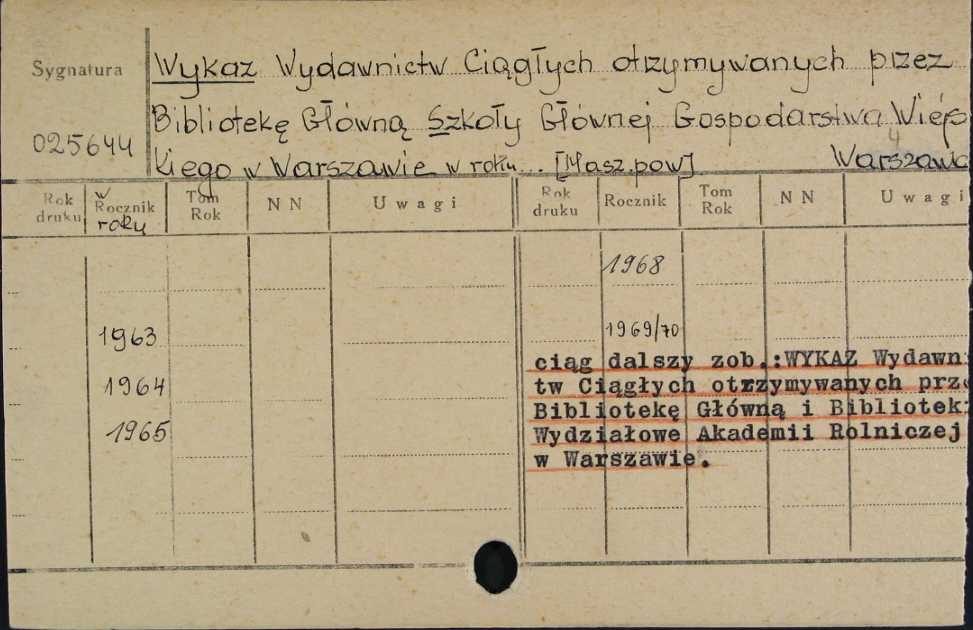 Sygnatura
025644
Wykaz Wydawnictw Ciągłych otrzymywanych przez
Bibliotekę Główną Szkoły Głównej Gospodarstwa Wiejs
kiego w Warszawie w roku... [Masz.pow] Warszawa
Rok druku
w Rocznik roku
Tom Rok
NN
Uwagi
Rok druku
Rocznik
Tom Rok
NN
Uwagi
1963
1964
1965
1968
1969/70
ciąg dalszy zob.:WYKAZ Wydawni
tw Ciągłych otrzymywanych prze
Bibliotekę Główną i Bibliotek
Wydziałowe Akademii Rolniczej
w Warszawie.